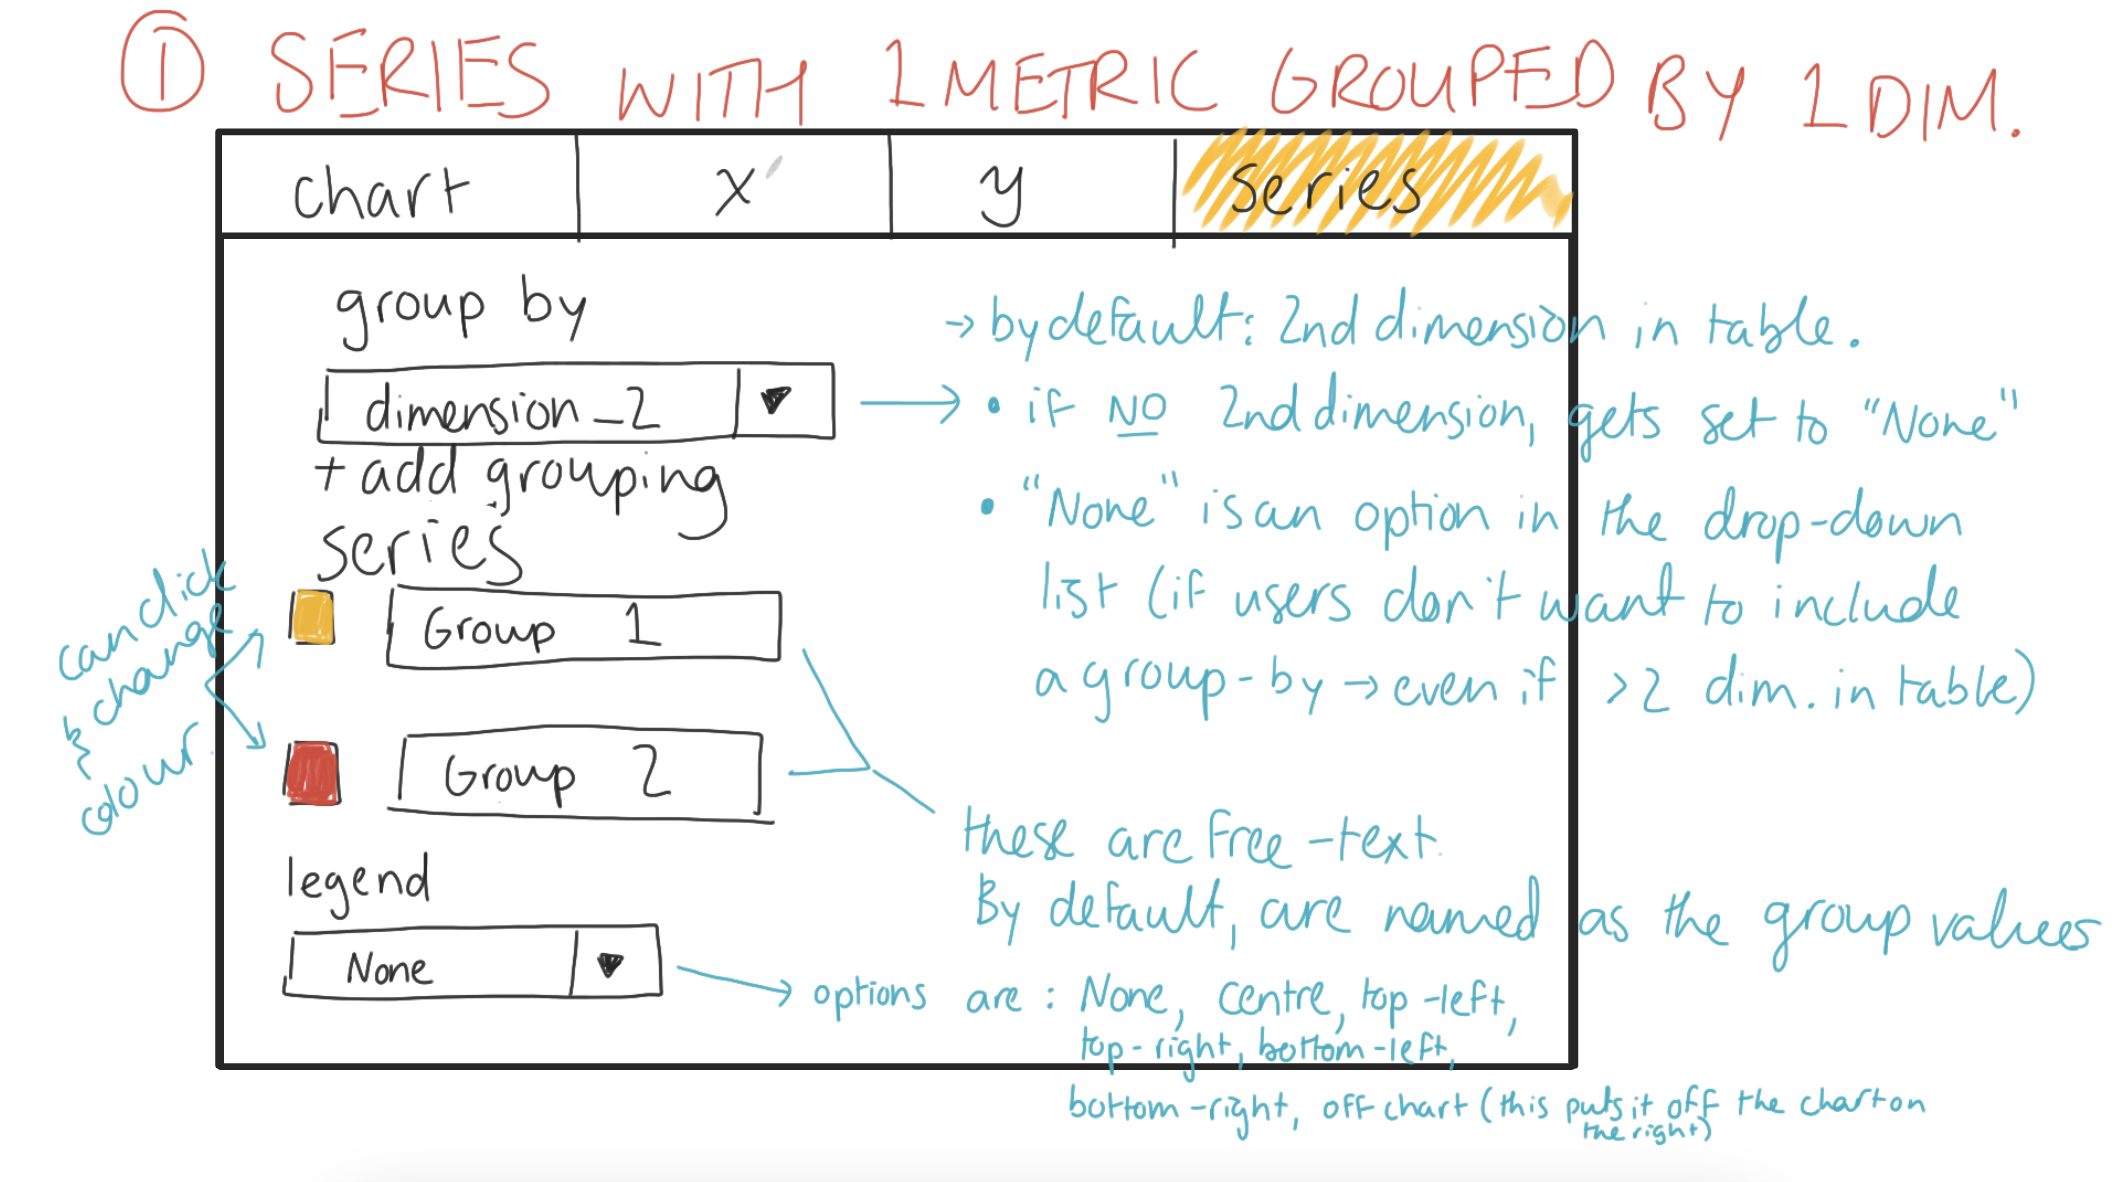 ① SERIES WITH 1 METRIC GROUPED BY 1 DIM.
chart x y series
group by
dimension_2
+ add grouping
→ by default: 2nd dimension in table.
• if NO 2nd dimension, gets set to "None"
• "None" is an option in the drop-down
list (if users don't want to include
a group-by → even if >2 dim. in table)
series
can click
& change
colour.
Group 1
Group 2
these are free-text.
By default, are named as the group values
legend
None
options are: None, centre, top-left,
top-right, bottom-left,
bottom-right, off chart (this puts it off the chart on
the right)